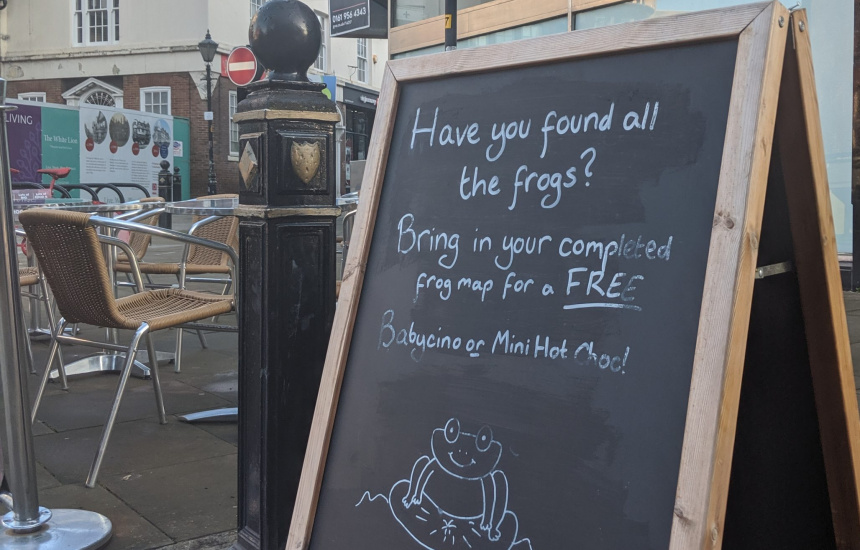 0161 956 4343
7
LIVING
The White Lion
Have you found all
the frogs?
Bring in your completed
frog map for a FREE
Babycino or Mini Hot Choc!